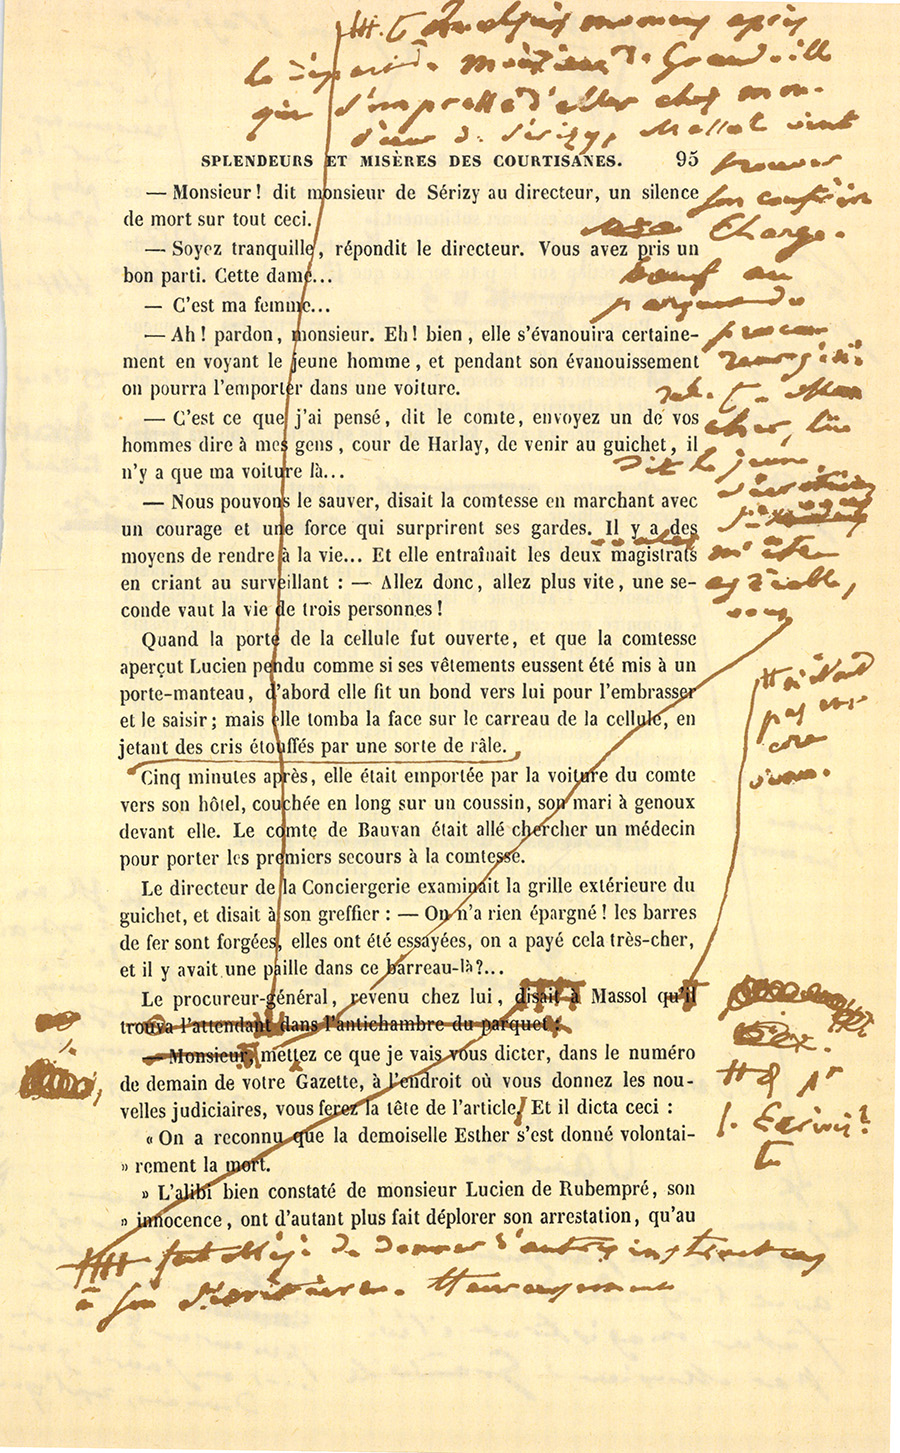 Quelques momens après
le départ de Monsieur de Grandville
qui s'empressa d'aller chez mon-
sieur de Sérizy, Massol vint
trouver
son confrère
Charge-
boeuf au
parquet du
procureur
général.
Mon
cher, lui
dit le jeune
secrétaire
SPLENDEURS ET MISÈRES DES COURTISANES. 95
— Monsieur! dit monsieur de Sérizy au directeur, un silence
de mort sur tout ceci.
— Soyez tranquille, répondit le directeur. Vous avez pris un
bon parti. Cette dame...
— C'est ma femme...
— Ah! pardon, monsieur. Eh! bien, elle s'évanouira certaine-
ment en voyant le jeune homme, et pendant son évanouissement
on pourra l'emporter dans une voiture.
— C'est ce que j'ai pensé, dit le comte, envoyez un de vos
hommes dire à mes gens, cour de Harlay, de venir au guichet, il
n'y a que ma voiture là...
— Nous pouvons le sauver, disait la comtesse en marchant avec
un courage et une force qui surprirent ses gardes. Il y a des
moyens de rendre à la vie... Et elle entraînait les deux magistrats
en criant au surveillant : — Allez donc, allez plus vite, une se-
conde vaut la vie de trois personnes!
Quand la porte de la cellule fut ouverte, et que la comtesse
aperçut Lucien pendu comme si ses vêtements eussent été mis à un
porte-manteau, d'abord elle fit un bond vers lui pour l'embrasser
et le saisir; mais elle tomba la face sur le carreau de la cellule, en
jetant des cris étouffés par une sorte de râle.
Cinq minutes après, elle était emportée par la voiture du comte
vers son hôtel, couchée en long sur un coussin, son mari à genoux
devant elle. Le comte de Bauvan était allé chercher un médecin
pour porter les premiers secours à la comtesse.
Le directeur de la Conciergerie examinait la grille extérieure du
guichet, et disait à son greffier : — On n'a rien épargné! les barres
de fer sont forgées, elles ont été essayées, on a payé cela très-cher,
et il y avait une paille dans ce barreau-là?...
Le procureur-général, revenu chez lui, disait à Massol qu'il
trouva l'attendant dans l'antichambre du parquet :
— Monsieur, mettez ce que je vais vous dicter, dans le numéro
de demain de votre Gazette, à l'endroit où vous donnez les nou-
velles judiciaires, vous ferez la tête de l'article. Et il dicta ceci :
« On a reconnu que la demoiselle Esther s'est donné volontai-
» rement la mort.
» L'alibi bien constaté de monsieur Lucien de Rubempré, son
» innocence, ont d'autant plus fait déplorer son arrestation, qu'au
si vous voulez
m'être
agréable,
vous
n'étant
pas en-
core
venu.
fut obligé de donner d'autres instructions
à son secrétaire. Heureusement